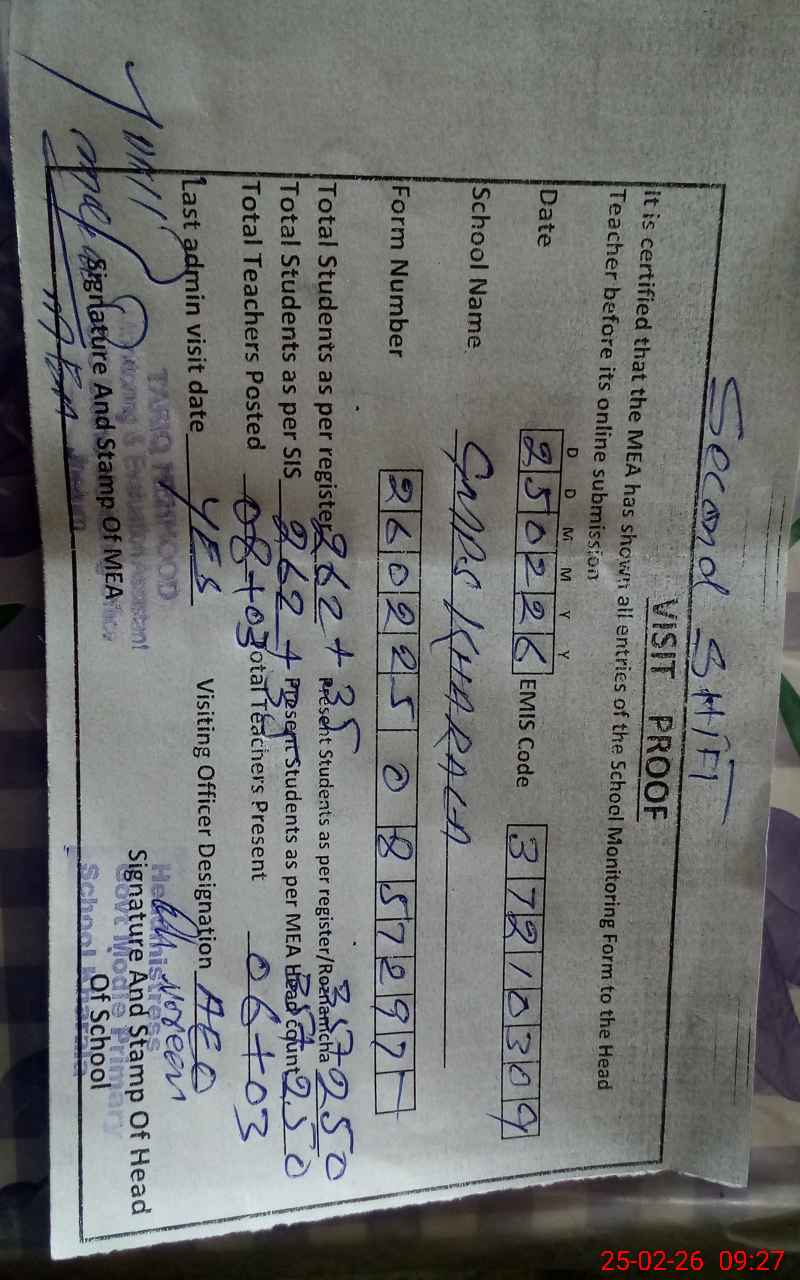 Second SHIFT
VISIT PROOF
It is certified that the MEA has shown all entries of the School Monitoring Form to the Head
Teacher before its online submission
D D M M Y Y
Date 250226 EMIS Code 37210309
School Name GMPS KHARALA
Form Number 2602250857297
Total Students as per register 262 + 35 Present Students as per register/Roznamcha 35+250
Total Students as per SIS 262 + 35 Present Students as per MEA Head count 35+250
Total Teachers Posted 08+03 Total Teachers Present 06+03
Last admin visit date YES Visiting Officer Designation AEO
TARIQ MEHMOOD
Monitoring & Evaluation Assistant
Signature And Stamp Of MEA
Headmistress
Noreen
Signature And Stamp Of Head
Govt Modle Primary
Of School
School Kharala
25-02-26 09:27